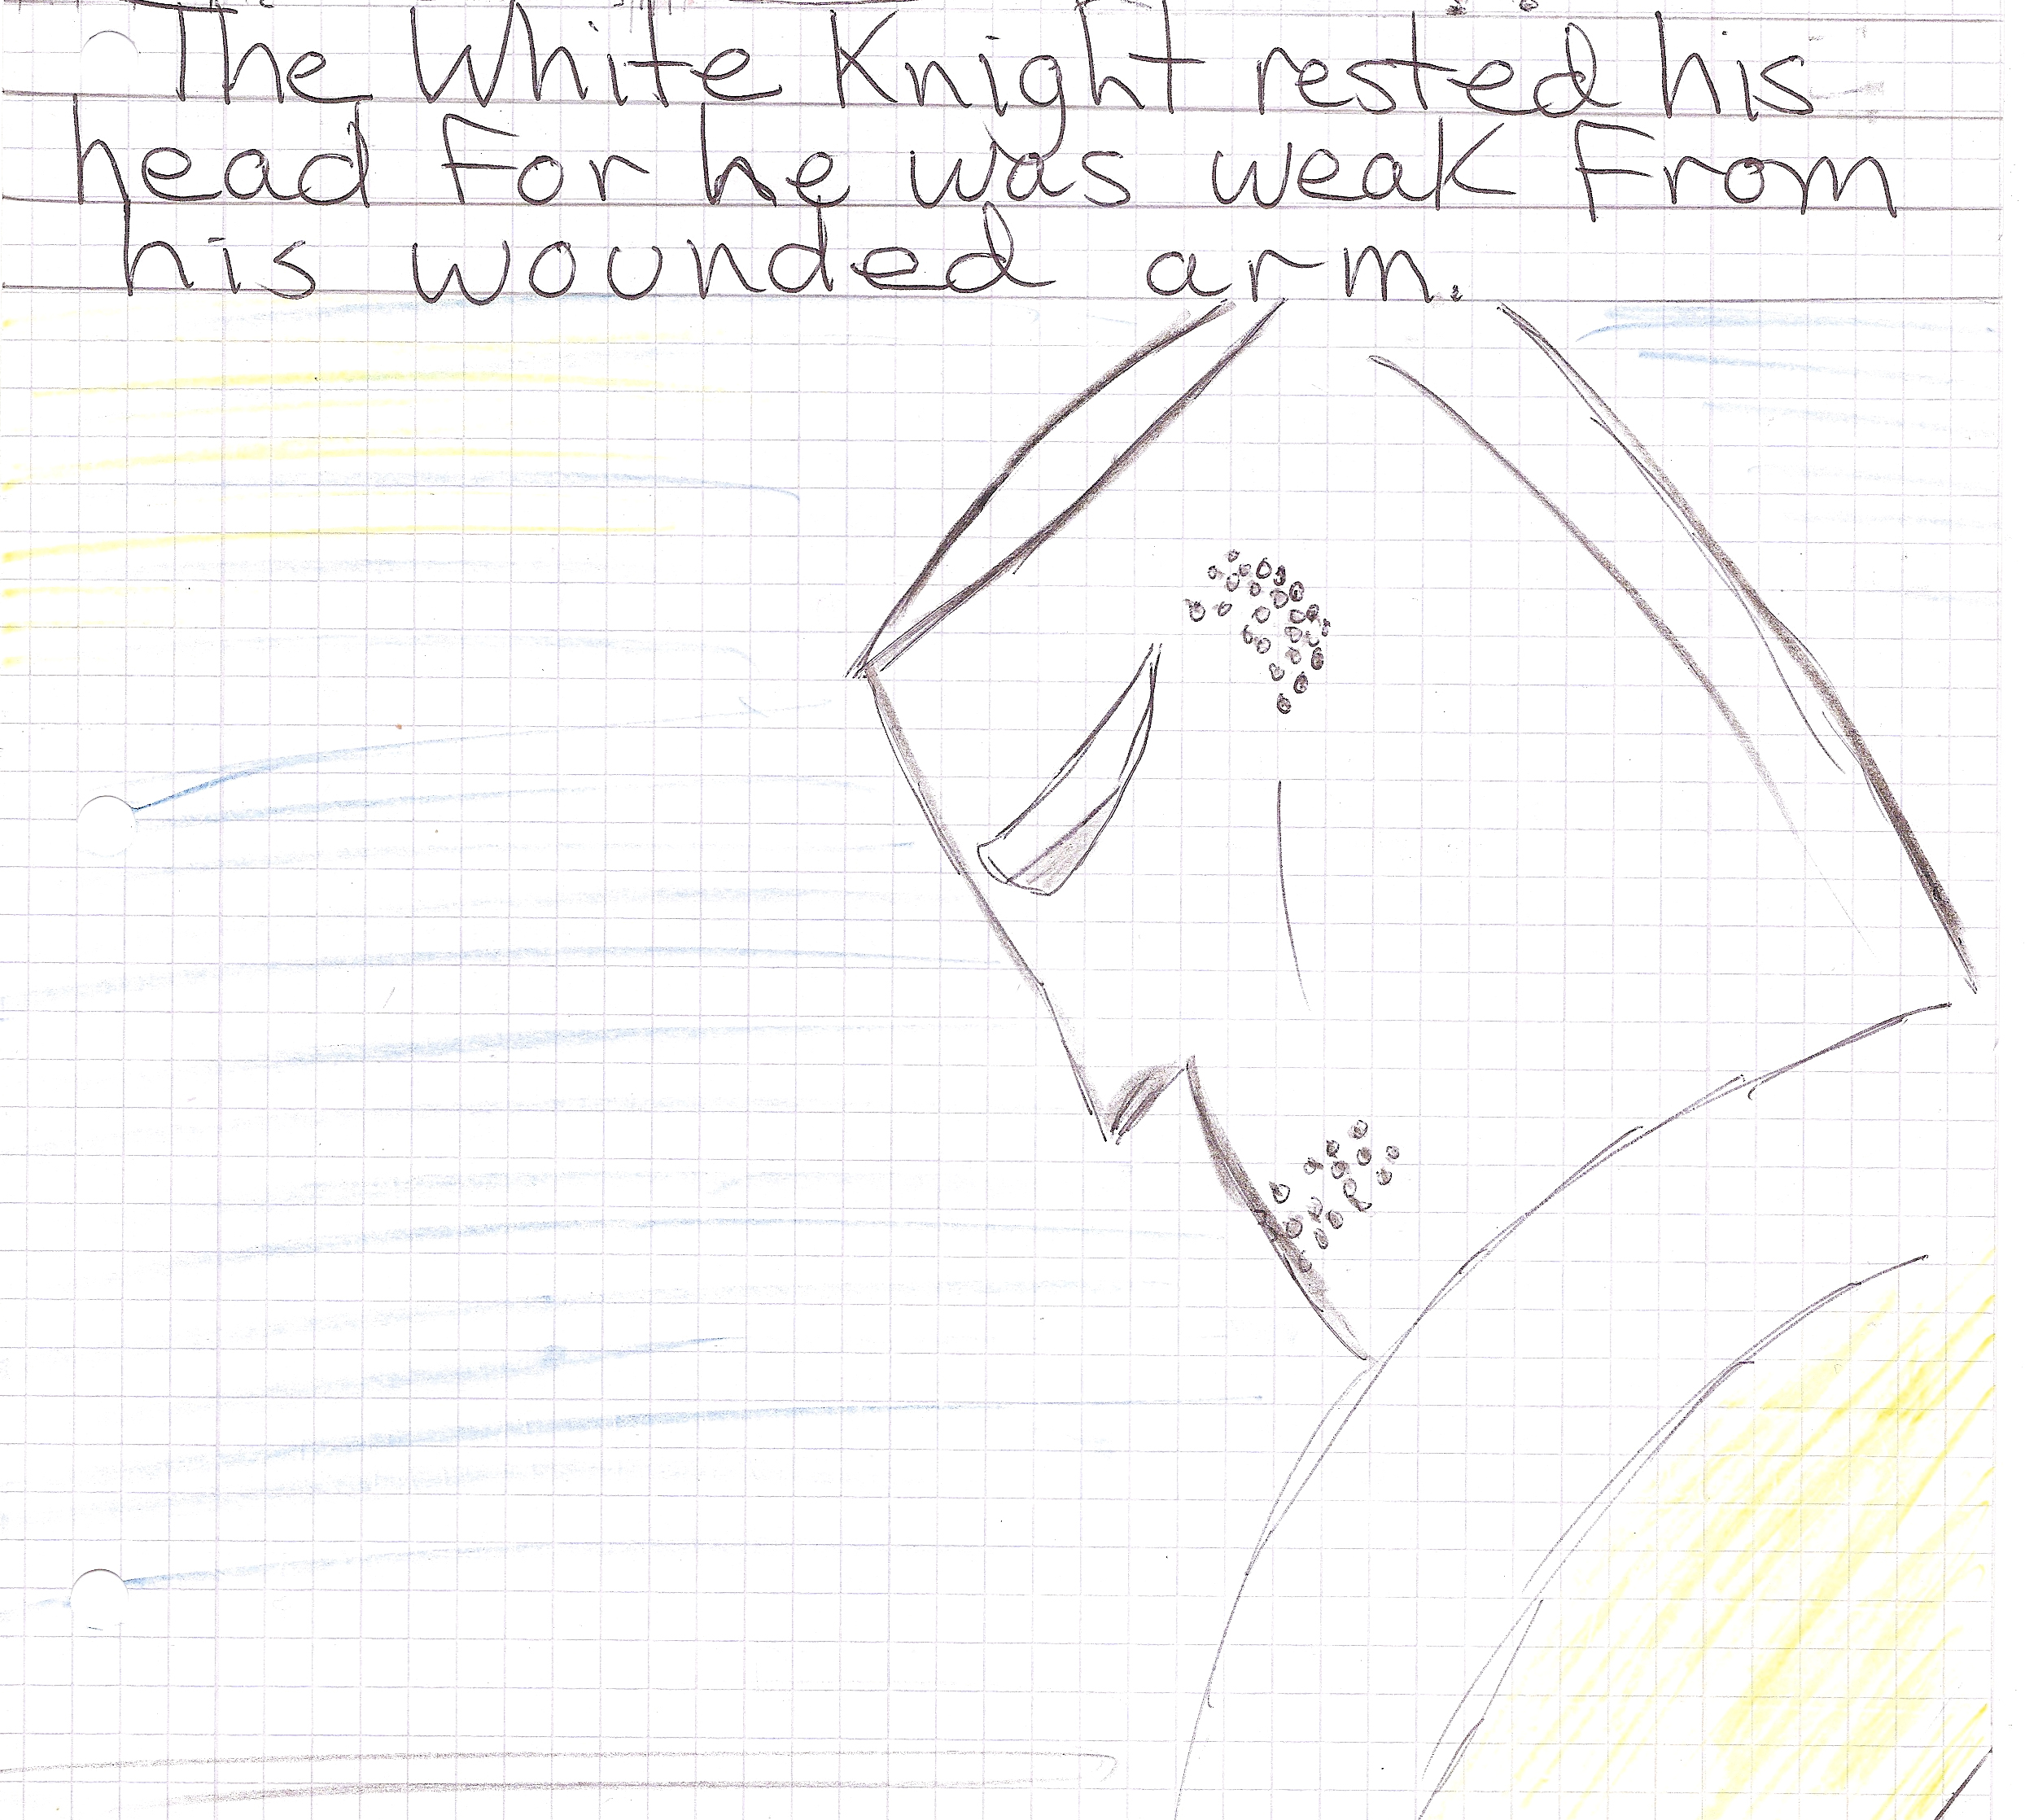 The White Knight rested his
head for he was weak from
his wounded arm.